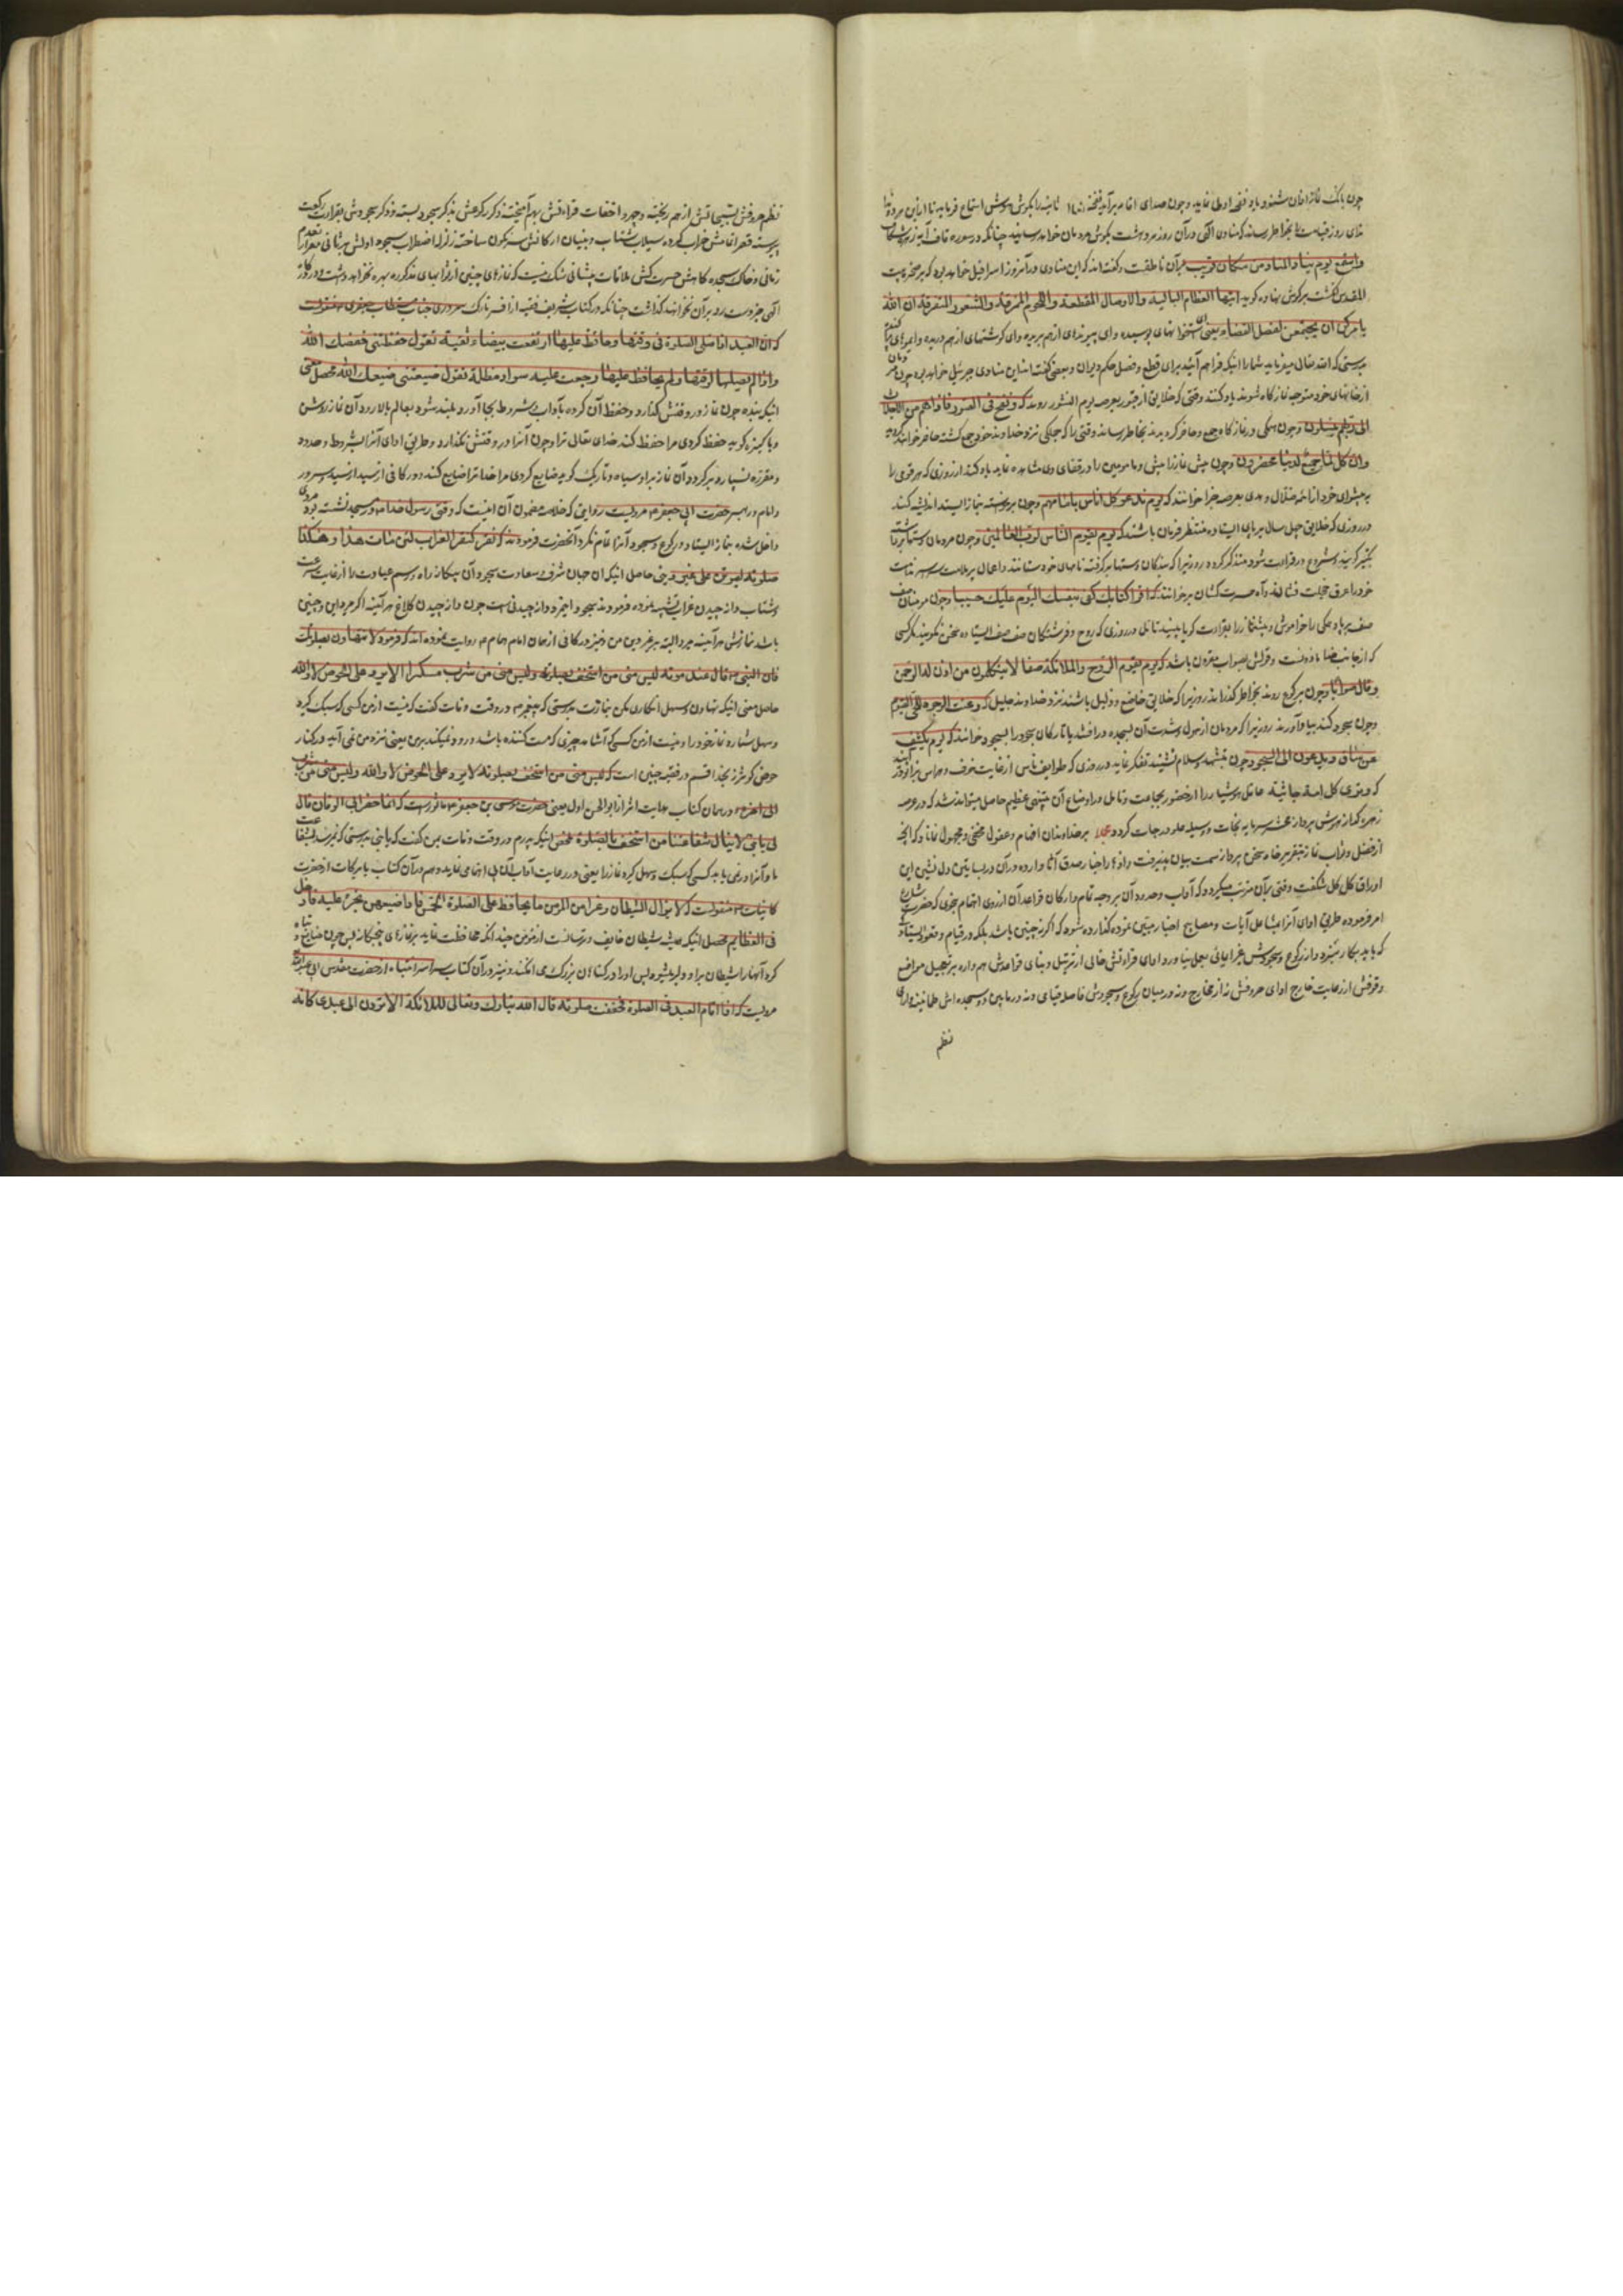 چون بانک نماز اذان شنود یاد نفخه اولی نماید و چون صدای اقامه برآید نفخه ثانیه را بگوش هوش استماع فرماید تا از این مر دو
ندای روز قیامت را بخاطر رساند که منادی الهی در آن روز بگوش مردمان خواهد رسانید چنانکه در سوره قاف آیه
واستمع یوم یناد المناد من مکان قریب بر آن ناطقست و گفته‌اند که این منادی در آنروز اسرافیل خواهد بود که بر صخره بیت
المقدس انگشت بر گوش نهاده گوید ایتها العظام البالیة والاوصال المقطعة واللحوم الممزقة والشعور المتفرقة ان الله
یامرکم ان یجتمعن لفصل القضاء یعنی ای استخوانهای پوسیده وای پیوندهای از هم بریده وای گوشتهای از هم دریده
بدرستی که الله تعالی میفرماید شما را اینکه فراهم آئید برای قطع و فصل حکم و بعضی گفته‌اند این منادی جبرئیل خواهد بود چون
از خانهای خود متوجه نماز گاه شوند یاد کنند وقتی که خلایق از قبور بعرصه یوم النشور روند که ونفخ فی الصور فاذا هم من الاجداث
الی ربهم ینسلون و چون همگی در نماز گاه جمع و حاضر گردند بخاطر رسانند وقتی را که جملگی نزد خداوند خود جمع گشته حاضر خواهند گردید
وان کل لما جمیع لدینا محضرون و چون پیش نماز را و مامومین را در قفای وی مشاهده نماید یاد کند از روزی که هر قومی را
به پیشوای خود از ائمه ضلال و هدی بعرصه جزا خوانند که یوم ندعو کل اناس بامامهم و چون برخاسته بنماز ایستد اندیشه کند
در روزی که خلایق چهل سال بر پای ایستاده منتظر فرمان باشند که یوم یقوم الناس لرب العالمین و چون مردمان دستها برداشته
تکبیر گویند و شروع در قراءت شود متذکر گردد روزیرا که بندگان بدستها گرفته نامهای خود ستانند و اعمال
خود را عرق خجلت فشانه و آه حسرت کشان برخوانند که اقرا کتابک کفی بنفسک الیوم علیک حسیبا و چون مومنان صف
صف بر پا و همگی را خاموش و پیشنماز را بقراءت گویا بیند تامل در روزی که روح و فرشتگان صف صف ایستاده سخن نگویند مگر کسی
که از جانب خدا ماذونست و قولش بصواب مقرون باشد که یوم یقوم الروح والملائکة صفا لا یتکلمون الا من اذن له الرحمن
وقال صوابا و چون برکوع روند بخاطر گذرانند روزیرا که خلایق خاضع و ذلیل باشند نزد خداوند جلیل که وعنت الوجوه للحی القیوم
و چون سجود کند بیاد آورند روزیرا که مردمان از هول و شدت آن بسجده درافتند یا تارکان سجود را بسجود خوانند که یوم یکشف
عن ساق ویدعون الی السجود و چون بتشهد و سلام نشیند تفکر نماید در روزی که طوایف ناس از غایت خوف و هراس بزانو در
که وتری کل امة جاثیة عاقل هوشیار را از حضور جماعت و تامل در اوضاع آن تنبیهی عظیم حاصل میتواند شد که در عرصه
زهره گداز هوش پرداز سرمایه نجات و وسیله علو درجات گردد مجملا بر خداوندان افهام و عقول مخفی و مجهول نماناد که آنچه
از فضل و ثواب نماز بتقریر خامه سخن پرداز سمت بیان پذیرفت و انواع اخبار صدق آثار وارده در آن در بساتین دلنشین این
اوراق گل گل شکفت وقتی بر آن مترتب میگردد که آداب و حدود آن بر وجه تمام و ارکان و قواعد آن از روی اهتمام بنحوی که حضرت شارع
امر فرموده و طریق ادای آنرا مشاعل آیات و مصابیح اخبار مبین نموده گذارده شود که اگر نه چنین باشد بلکه در قیام و قعود
که باید بکار نبرده و از رکوع و سجودش بغیر ایمائی بعمل نیاورد ادای قراءتش خالی از ترتیل و بنای قواعدش همواره بر تعجیل مواضع
وقوفش از رعایت خارج ادای حروفش نه از مخارج و نه در میان رکوع و سجودش فاصله قیامی و نه در مابین دو سجده‌اش طمانینه
نظم
نظم حروفش تسبیحاتش از هم ریخته و جهر و اخفات قراءتش بهم آمیخته ذکر رکوعش بذکر سجود بسته و ذکر سجودش بقراءت رکعت
پیوسته قصر اقامتش خراب کرده سیلاب شتاب و بنیان ارکانش سرنگون ساخته زلزله اضطراب سجود اولش
زمانی و خاک سجده گاهش حسرت کش ملاقات پیشانی شکی نیست که نمازهای چنین از ثوابهای مذکوره بهره نخواهد داشت و در کاه
الهی جز دست رد بر آن نخواهند گذاشت چنانکه در کتاب شریف فقیه از جناب مستطاب جعفری منقولست
که ان العبد اذا صلی الصلوة فی وقتها وحافظ علیها ارتفعت بیضاء نقیة تقول حفظتنی حفظک الله
واذا لم یصلها لوقتها ولم یحافظ علیها رجعت علیه سوداء مظلمة تقول ضیعتنی ضیعک الله محصل معنی
اینکه بنده چون نماز در وقتش گذارد و حفظ آن کرده باآداب و شروط بجا آورد بلند شود بعالم بالا رود آن نماز روشن
و پاکیزه گوید حفظ کردی مرا حفظ کند خدای تعالی ترا و چون آنرا در وقتش نگذارد و طریق ادای آنرا بشروط و حدود
و مقرره نسپارد برگردد آن نماز بر او سیاه و تاریک گوید ضایع کردی مرا خدا ترا ضایع کند و در کافی از
و امام حضرت ابی جعفر مرویست روایتی که خلاصه مضمون آن اینست که وقتی رسول خدا در مسجد نشسته بود مردی
داخل شده بنماز ایستاد و رکوع و سجود آنرا تمام نکرد آنحضرت فرمودند که نقر کنقر الغراب لئن مات هذا وهکذا
صلوته لیموتن علی غیر دینی حاصل اینکه
و شتاب دانه چیدن غراب تشبیه نموده فرمودند دانه چیدنی است چون دانه چیدن کلاغ هر آینه اگر میرد این و چنین
باشد نمازش هر آینه میرد البته بر غیر دین من و نیز در کافی از همان امام همام روایت نموده‌اند که فرمود لا تتهاون بصلوتک
فان النبی قال عند موته لیس منی من استخف بصلوته لیس منی من شرب مسکرا لا یرد علی الحوض لا والله
حاصل معنی اینکه تهاون و سهل انگاری مکن بنمازت بدرستی که پیغمبر در وقت وفات گفت که نیست از من کسی که سبک گیرد
و سهل شمارد نماز خود را و نیست از من کسی که آشامد چیزی که مست کننده باشد وارد نمیگردد بر من یعنی نزد من نمی‌آید در کنار
حوض کوثر نه بخدا قسم و در فقیه چنین است که لیس منی من استخف بصلوته لا یرد علی الحوض لا والله ولیس منی من شرب
الی آخره و در همان کتاب هدایت اثر از ابو الحسن اول یعنی حضرت موسی بن جعفر ماثورست که لما حضر ابی الوفاة قال
لی یا بنی لا ینال شفاعتنا من استخف بالصلوة ملخص اینکه پدرم در وقت وفات بمن گفت که یا بنی بدرستی که نمیرسد بشفاعت
ما و آنرا در نمی یابد کسی که سبک و سهل گیرد نماز را یعنی در رعایت آداب آن بی اهتمامی نماید و هم در آن کتاب با برکات از حضرت
کائنات منقولست که لا یزال الشیطان ذعرا من المؤمن ما یحافظ علی الصلوة الخمس فاذا ضیعهن تجرء علیه فادخله
فی العظایم محصل اینکه همیشه شیطان خایف و ترسانست از مؤمن چند آنکه محافظت نماید بر نمازهای پنجگانه پس چون ضایع
کرد آنها را شیطان بر او دلیر میشود پس او را در گناهان بزرگ می افکند و نیز در آن کتاب سراسر انتباه از حضرت مقدس ابی عبد الله
مرویست که اذا قام العبد فی الصلوة فخفف صلوته قال الله تبارک وتعالی للملائکة الا ترون الی عبدی کانه